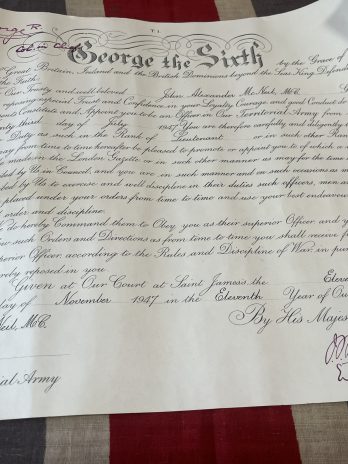 George R.
George the Sixth
by the Grace of
Great Britain, Ireland and the British Dominions beyond the Seas, King, Defende
the Faith
Our Trusty and well beloved John Alexander McNeil, M.C.
reposing especial Trust and Confidence in your Loyalty Courage and good Conduct do
sents Constitute and Appoint you to be an Officer in Our Territorial Army from
nty third day of July 1947. You are therefore carefully and diligently t
Duty as such in the Rank of Lieutenant or in such other Rank
from time to time hereafter be pleased to promote or appoint you to, of which a n
made in the London Gazette, or in such other manner as may for the time b
bed by Us in Council, and you are in such manner and on such occasions as ma
bed by Us to exercise and well discipline in their duties such officers, men a
placed under your orders from time to time and use your best endeavou
order and discipline.
do hereby Command them to Obey you as their superior Officer and y
ow such Orders and Directions as from time to time you shall receive f
perior Officer, according to the Rules and Discipline of War, in pur
hereby reposed in you.
Given at Our Court, at Saint James's the Eleve
day of November 1947 in the Eleventh Year of Our
Neil, M.C.
By His Majes
ial Army